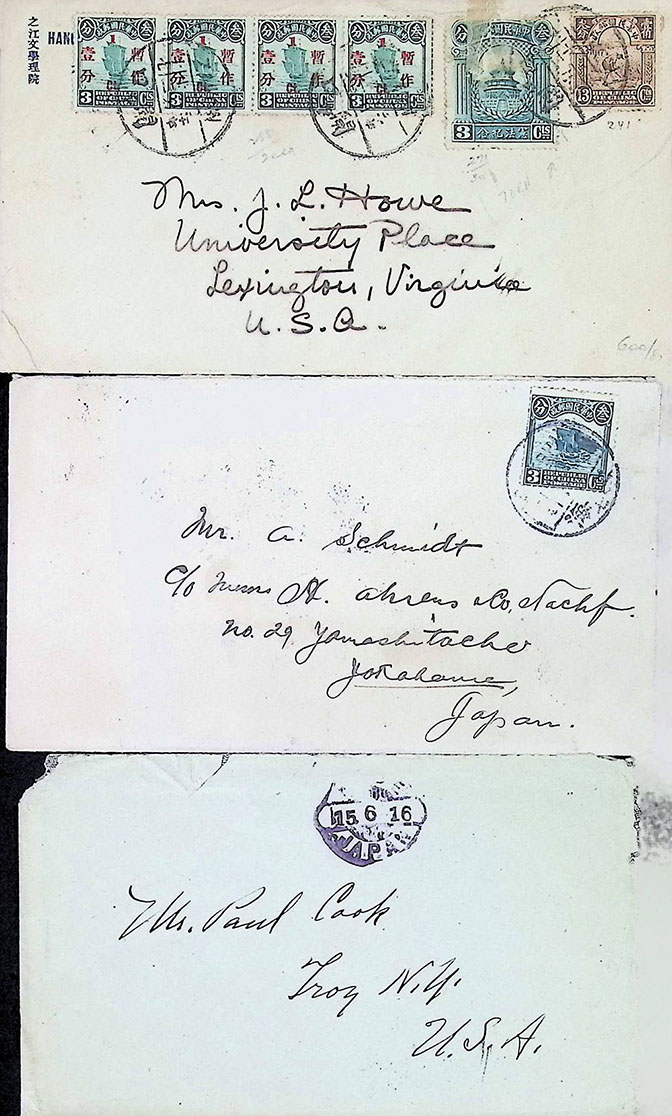 之江文學理院
HAN
暫作
壹分
1
3 Cts
暫作
壹分
1
3 Cts
暫作
壹分
1
3 Cts
暫作
壹分
1
3 Cts
3 Cts
13 Cts
241
Mrs. J. L. Howe
University Place
Lexington, Virginia
U.S.A.
600/
3 Cts
Mr. A. Schmidt
c/o Messrs H. Ahrens & Co, Nachf.
No. 29 Yamashitacho
Yokohama,
Japan.
15 6 16
JAPAN
Mr. Paul Cook
Troy N.Y.
U.S.A.